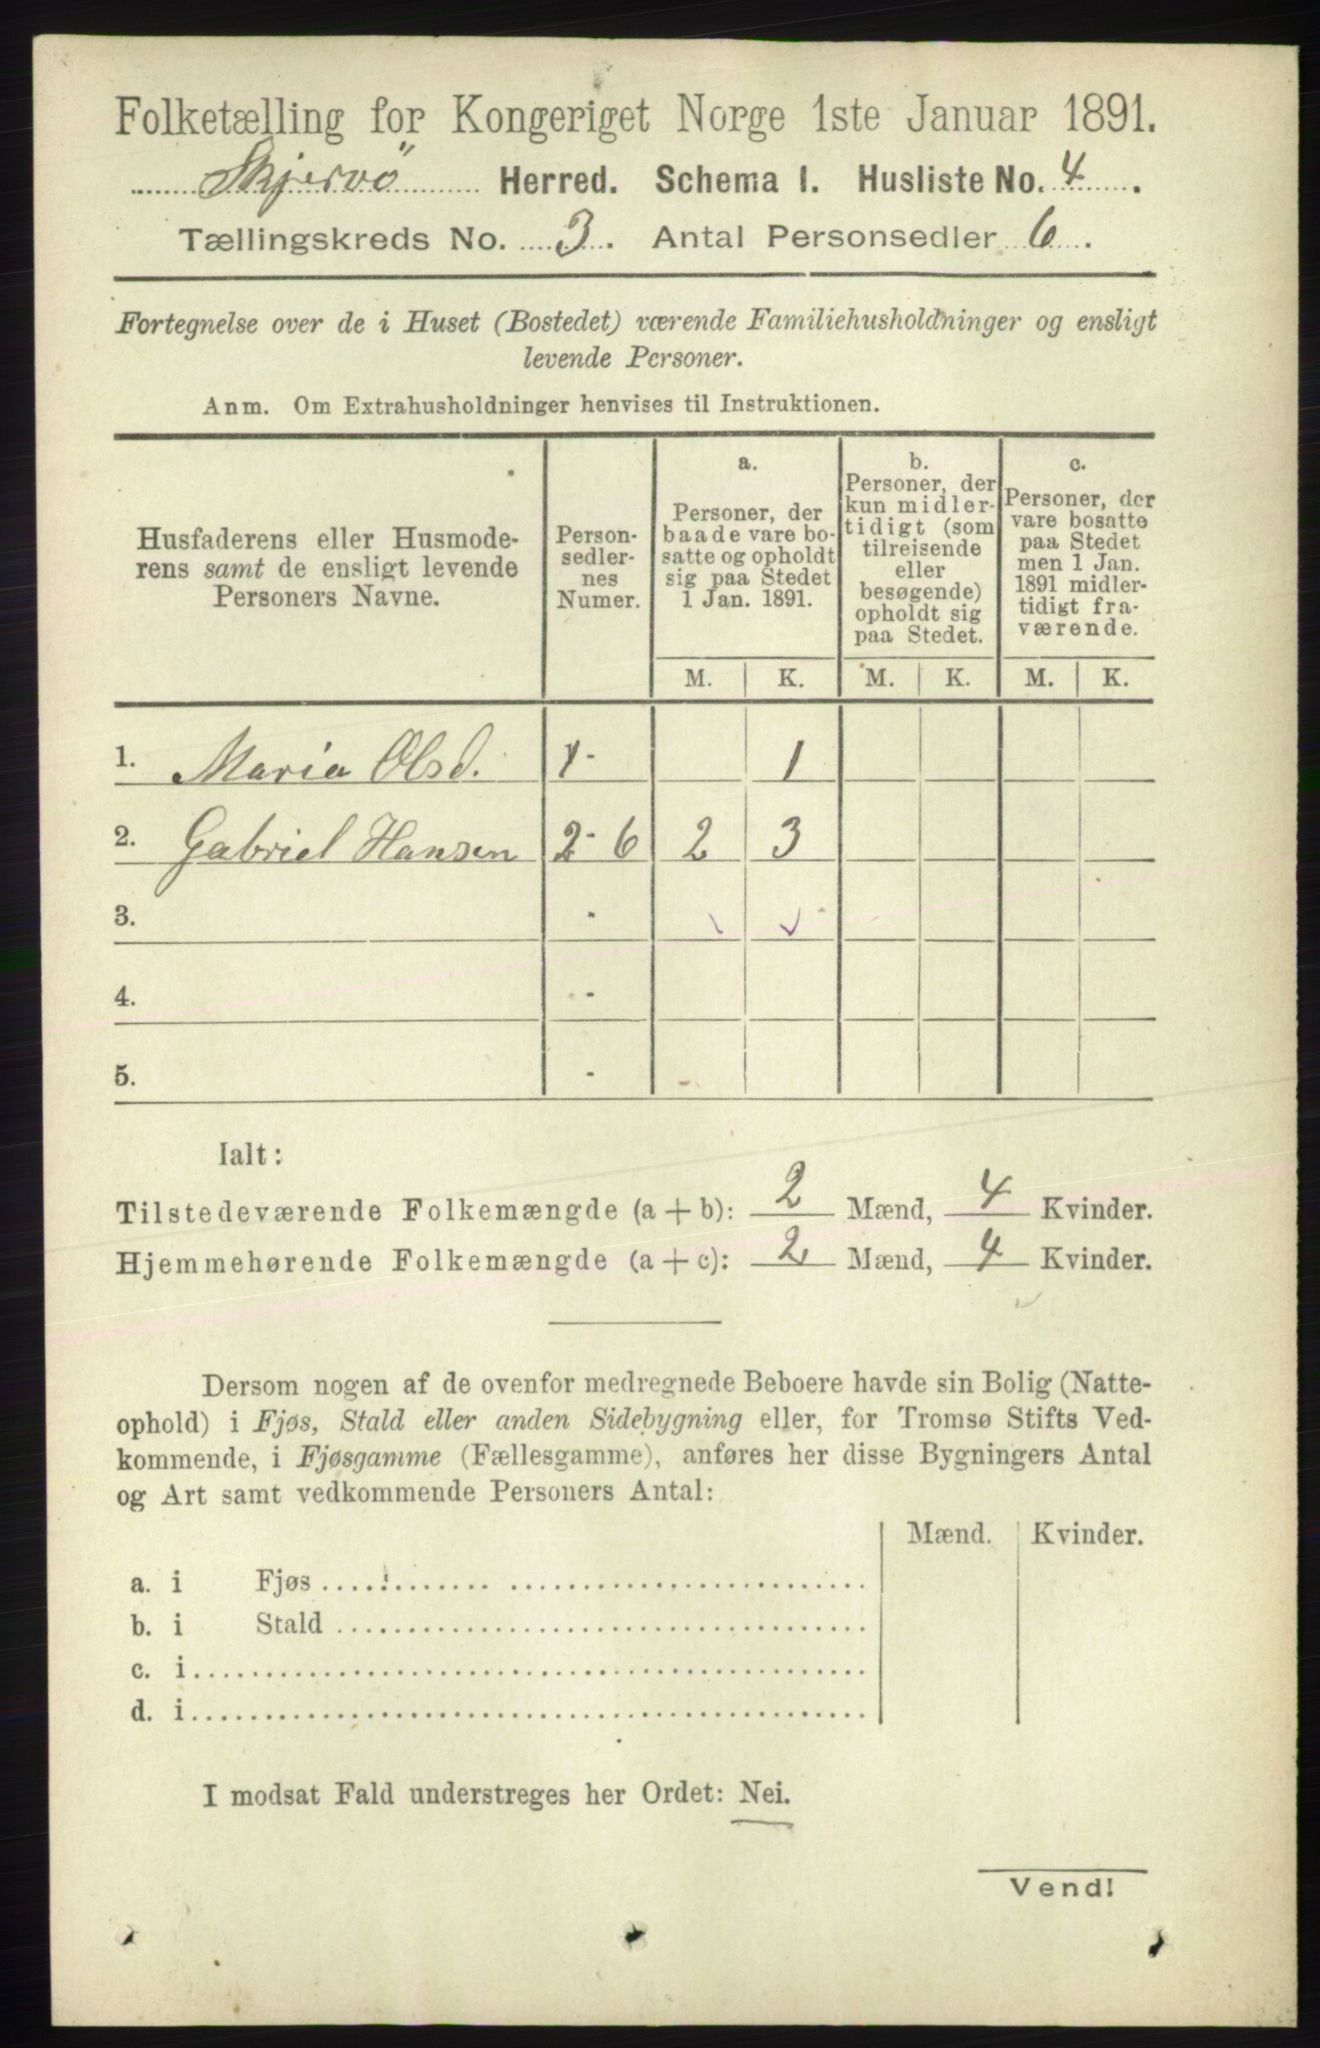 Folketælling for Kongeriget Norge 1ste Januar 1891.
Skjervö Herred. Schema I. Husliste No. 4.
Tællingskreds No. 3. Antal Personsedler 6.
Fortegnelse over de i Huset (Bostedet) værende Familiehusholdninger og ensligt
levende Personer.
Anm. Om Extrahusholdninger henvises til Instruktionen.
Husfaderens eller Husmode-
rens samt de ensligt levende
Personers Navne.
Person-
sedler-
nes
Numer.
a.
Personer, der
baade vare bo-
satte og opholdt
sig paa Stedet
1 Jan. 1891.
b.
Personer, der
kun midler-
tidigt (som
tilreisende
eller
besøgende)
opholdt sig
paa Stedet.
c.
Personer, der
vare bosatte
paa Stedet
men 1 Jan.
1891 midler-
tidigt fra-
værende.
M. K. M. K. M. K.
1. Maria Olsd. 1 - 1
2. Gabriel Hansen 2 - 6 2 3
3. -
4. -
5. -
Ialt:
Tilstedeværende Folkemængde (a + b): 2 Mænd, 4 Kvinder.
Hjemmehørende Folkemængde (a + c): 2 Mænd, 4 Kvinder.
Dersom nogen af de ovenfor medregnede Beboere havde sin Bolig (Natte-
ophold) i Fjøs, Stald eller anden Sidebygning eller, for Tromsø Stifts Ved-
kommende, i Fjøsgamme (Fællesgamme), anføres her disse Bygningers Antal
og Art samt vedkommende Personers Antal:
Mænd. Kvinder.
a. i Fjøs
b. i Stald
c. i
d. i
I modsat Fald understreges her Ordet: Nei.
Vend!